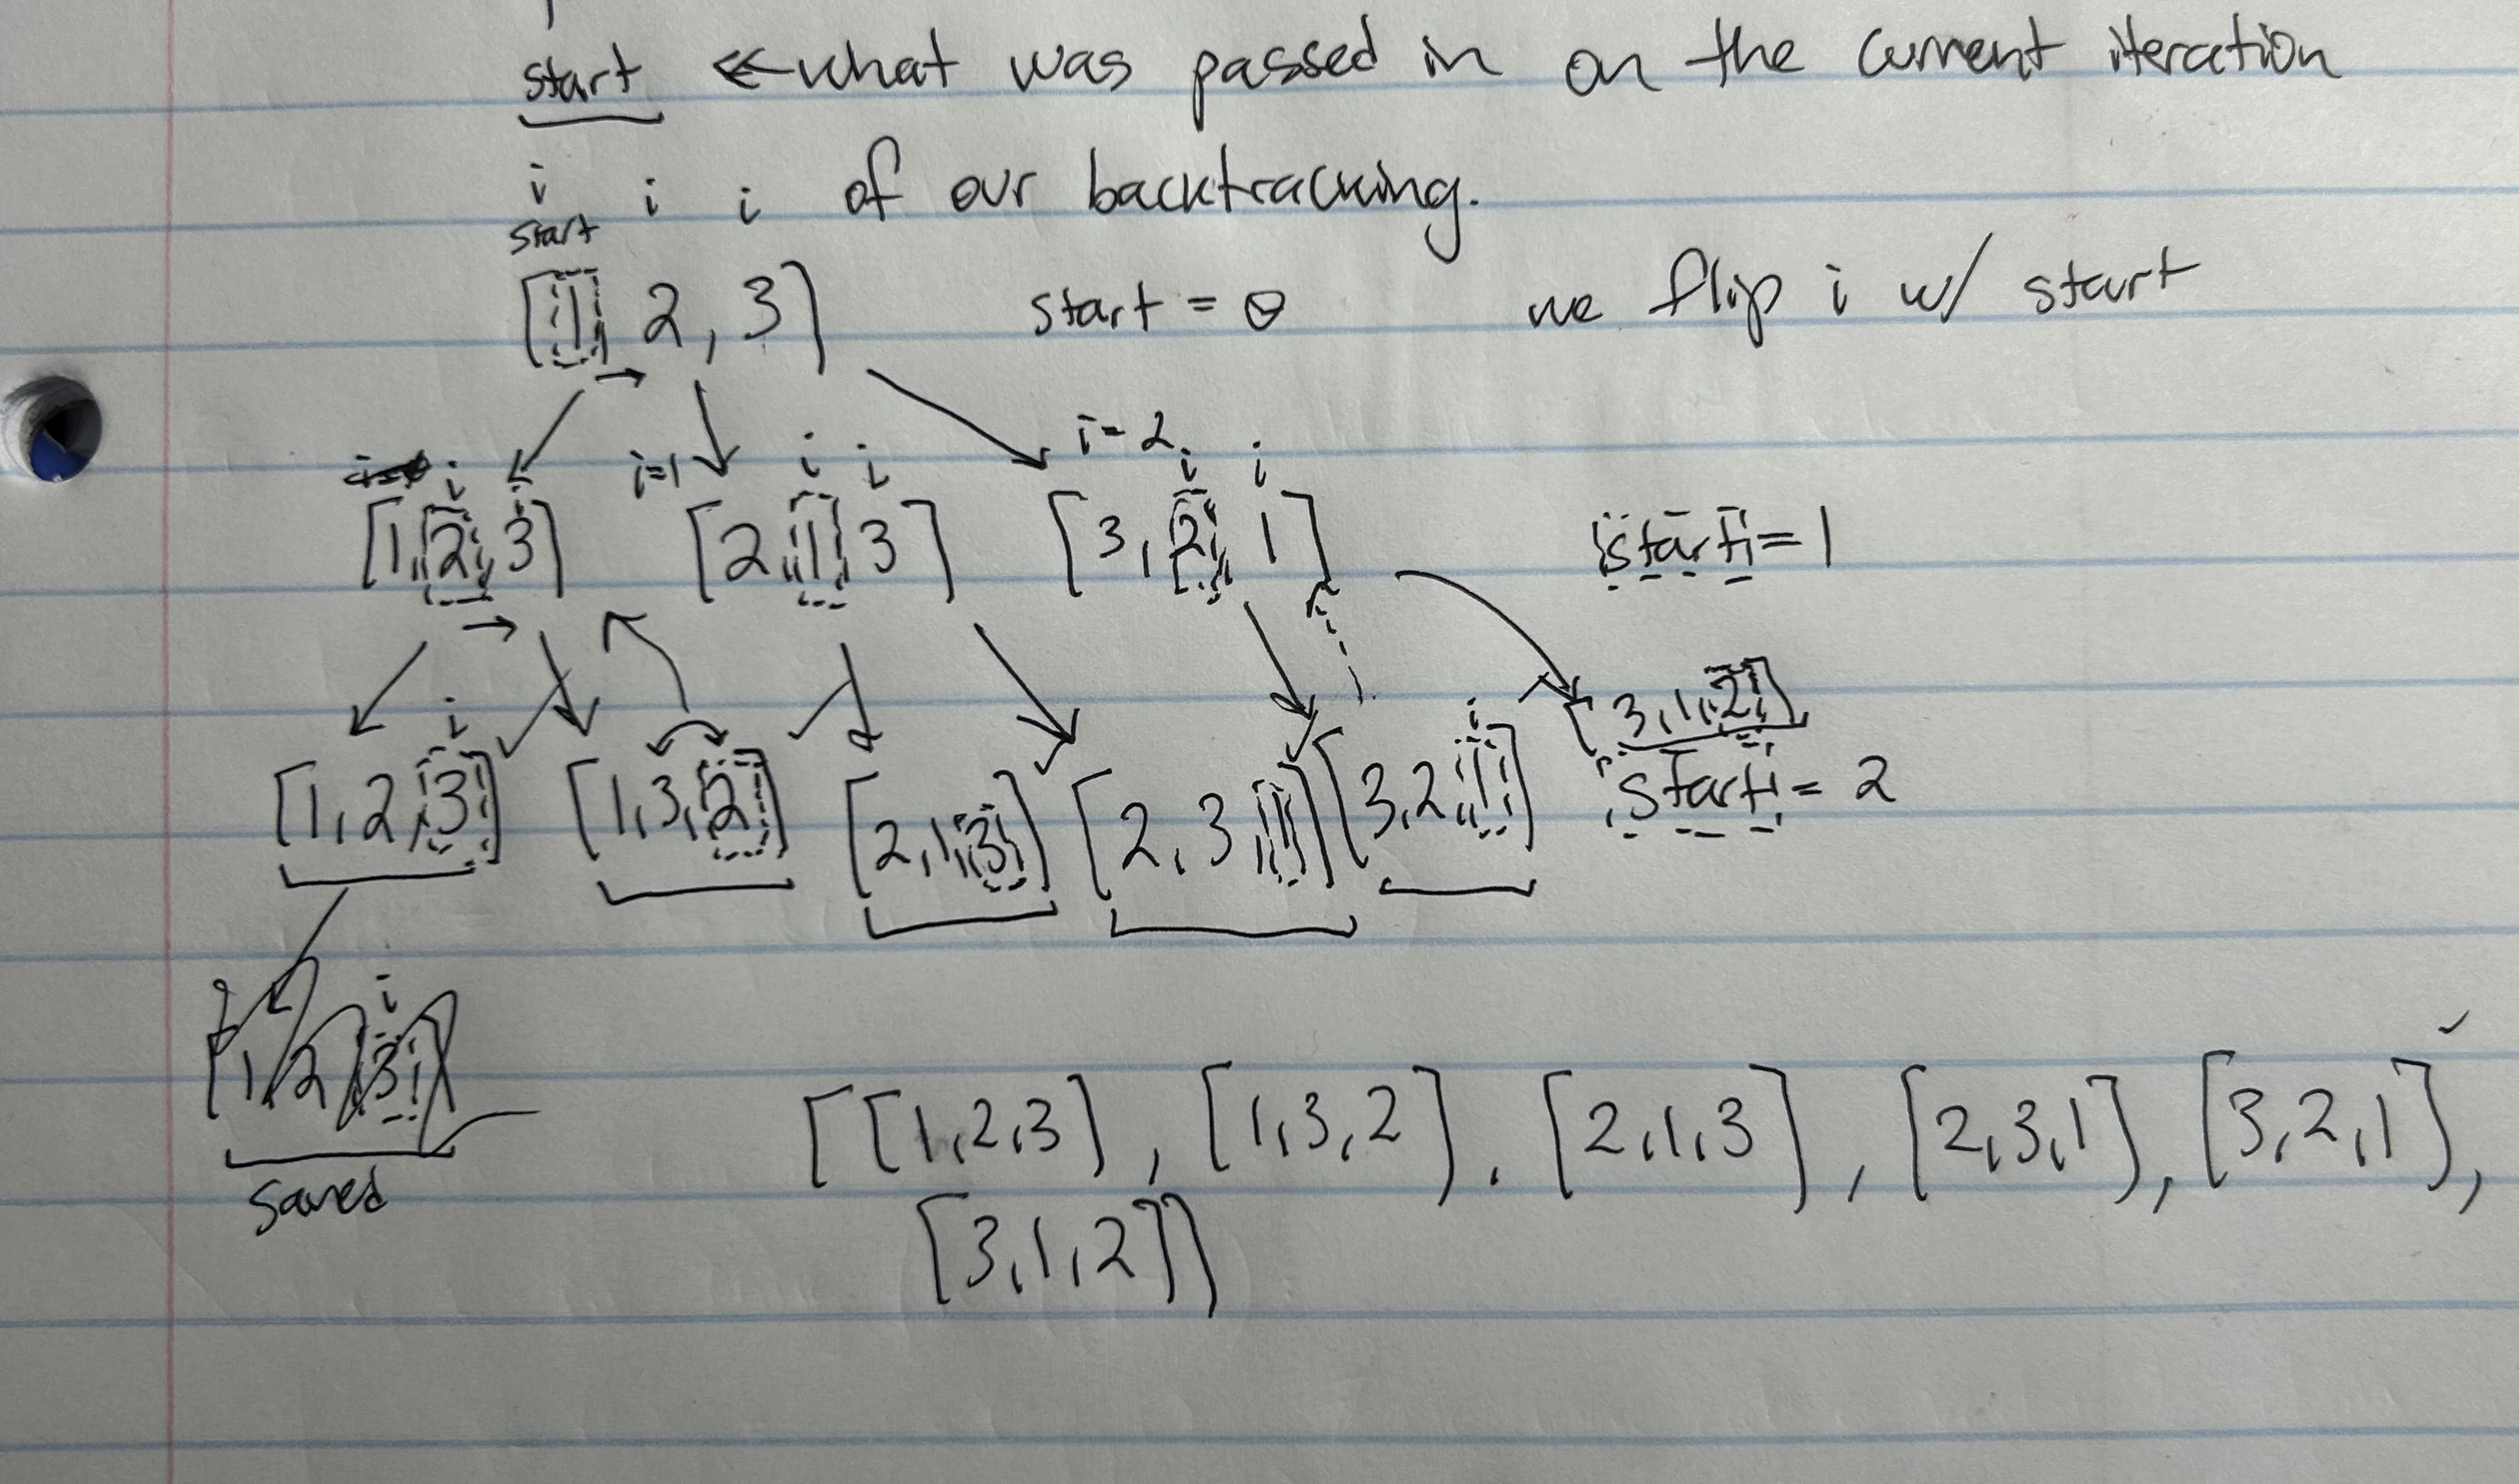 start ← what was passed in on the current iteration
i i i of our backtracking.
start
[1, 2, 3] start = 0 we flip i w/ start
i i=1 i i i=2 i i
[1, 2, 3] [2, 1, 3] [3, 2, 1] start = 1
i i [3, 1, 2]
[1, 2, 3] [1, 3, 2] [2, 1, 3] [2, 3, 1] [3, 2, 1] start = 2
i
[1, 2, 3]
saved
[[1, 2, 3], [1, 3, 2], [2, 1, 3], [2, 3, 1], [3, 2, 1],
[3, 1, 2]]